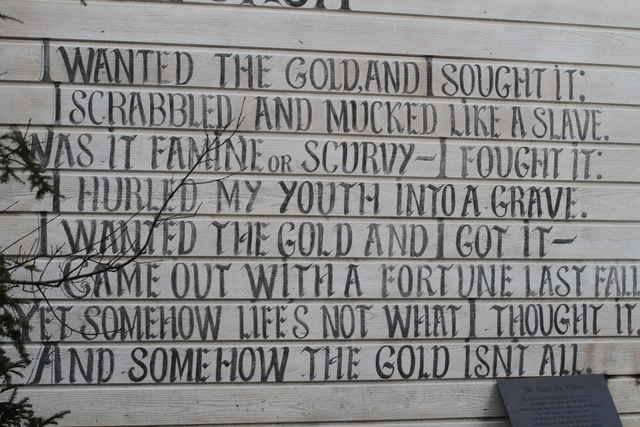 I WANTED THE GOLD, AND I SOUGHT IT;
I SCRABBLED AND MUCKED LIKE A SLAVE.
WAS IT FAMINE OR SCURVY—I FOUGHT IT:
I HURLED MY YOUTH INTO A GRAVE.
I WANTED THE GOLD AND I GOT IT—
CAME OUT WITH A FORTUNE LAST FALL
YET SOMEHOW LIFE'S NOT WHAT I THOUGHT IT,
AND SOMEHOW THE GOLD ISN'T ALL.